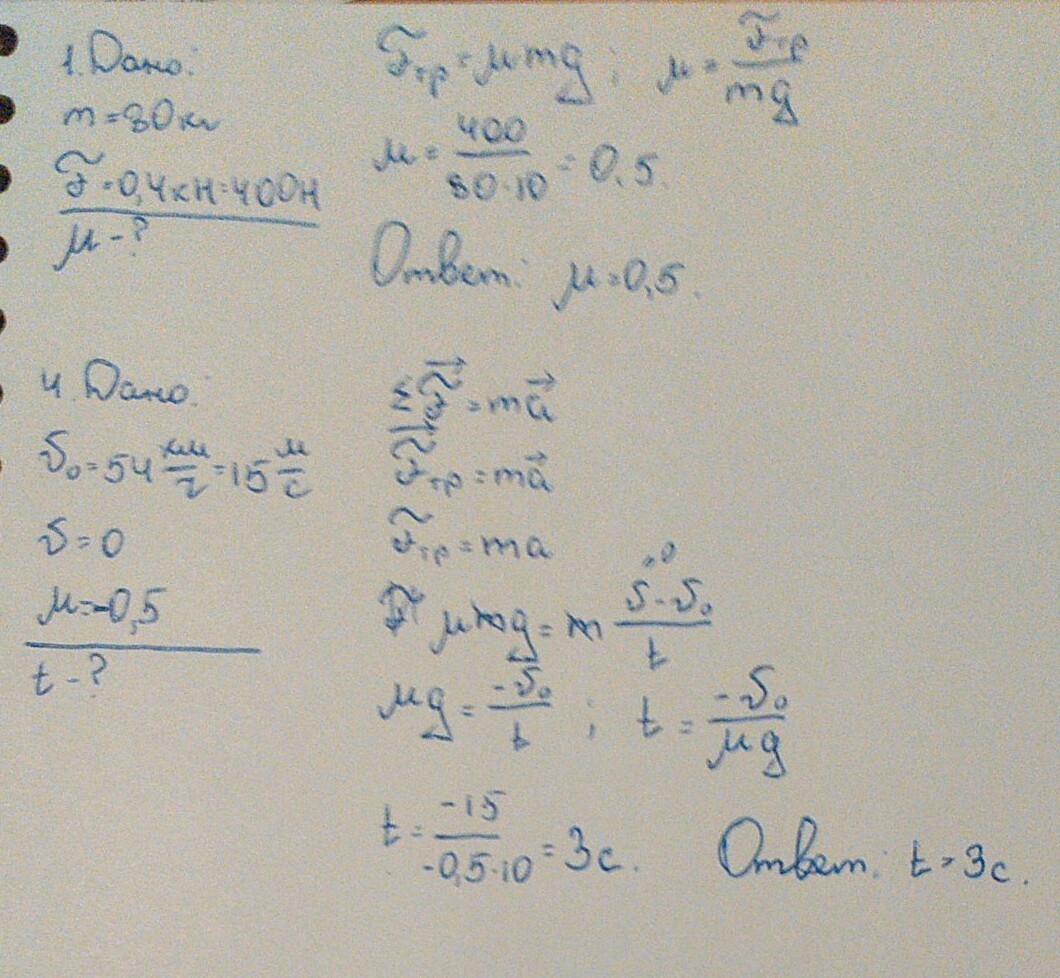 1. Дано:
m = 80 кг
F = 0,4 кН = 400 Н
μ - ?
Fтр = μmg ; μ = Fтр/mg
μ = 400/80·10 = 0,5.
Ответ: μ = 0,5.
4. Дано:
v₀ = 54 км/ч = 15 м/с
v = 0
μ = -0,5
t - ?
ΣF⃗ = ma⃗
F⃗тр = ma⃗
Fтр = ma
μmg = m (v - v₀)/t
μg = -v₀/t ; t = -v₀/μg
t = -15/-0,5·10 = 3 с.
Ответ: t = 3 с.